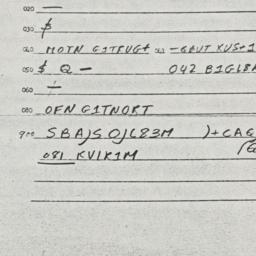 020 —
030 $
040 MOTN G1TRUG+ — GRUT XUS+1
050 $ Q — 042 B1GL8A
060 ÷
080 OFN G1TNORT
900 SBAJSOJL83M )+CAG
081 KVIK1M